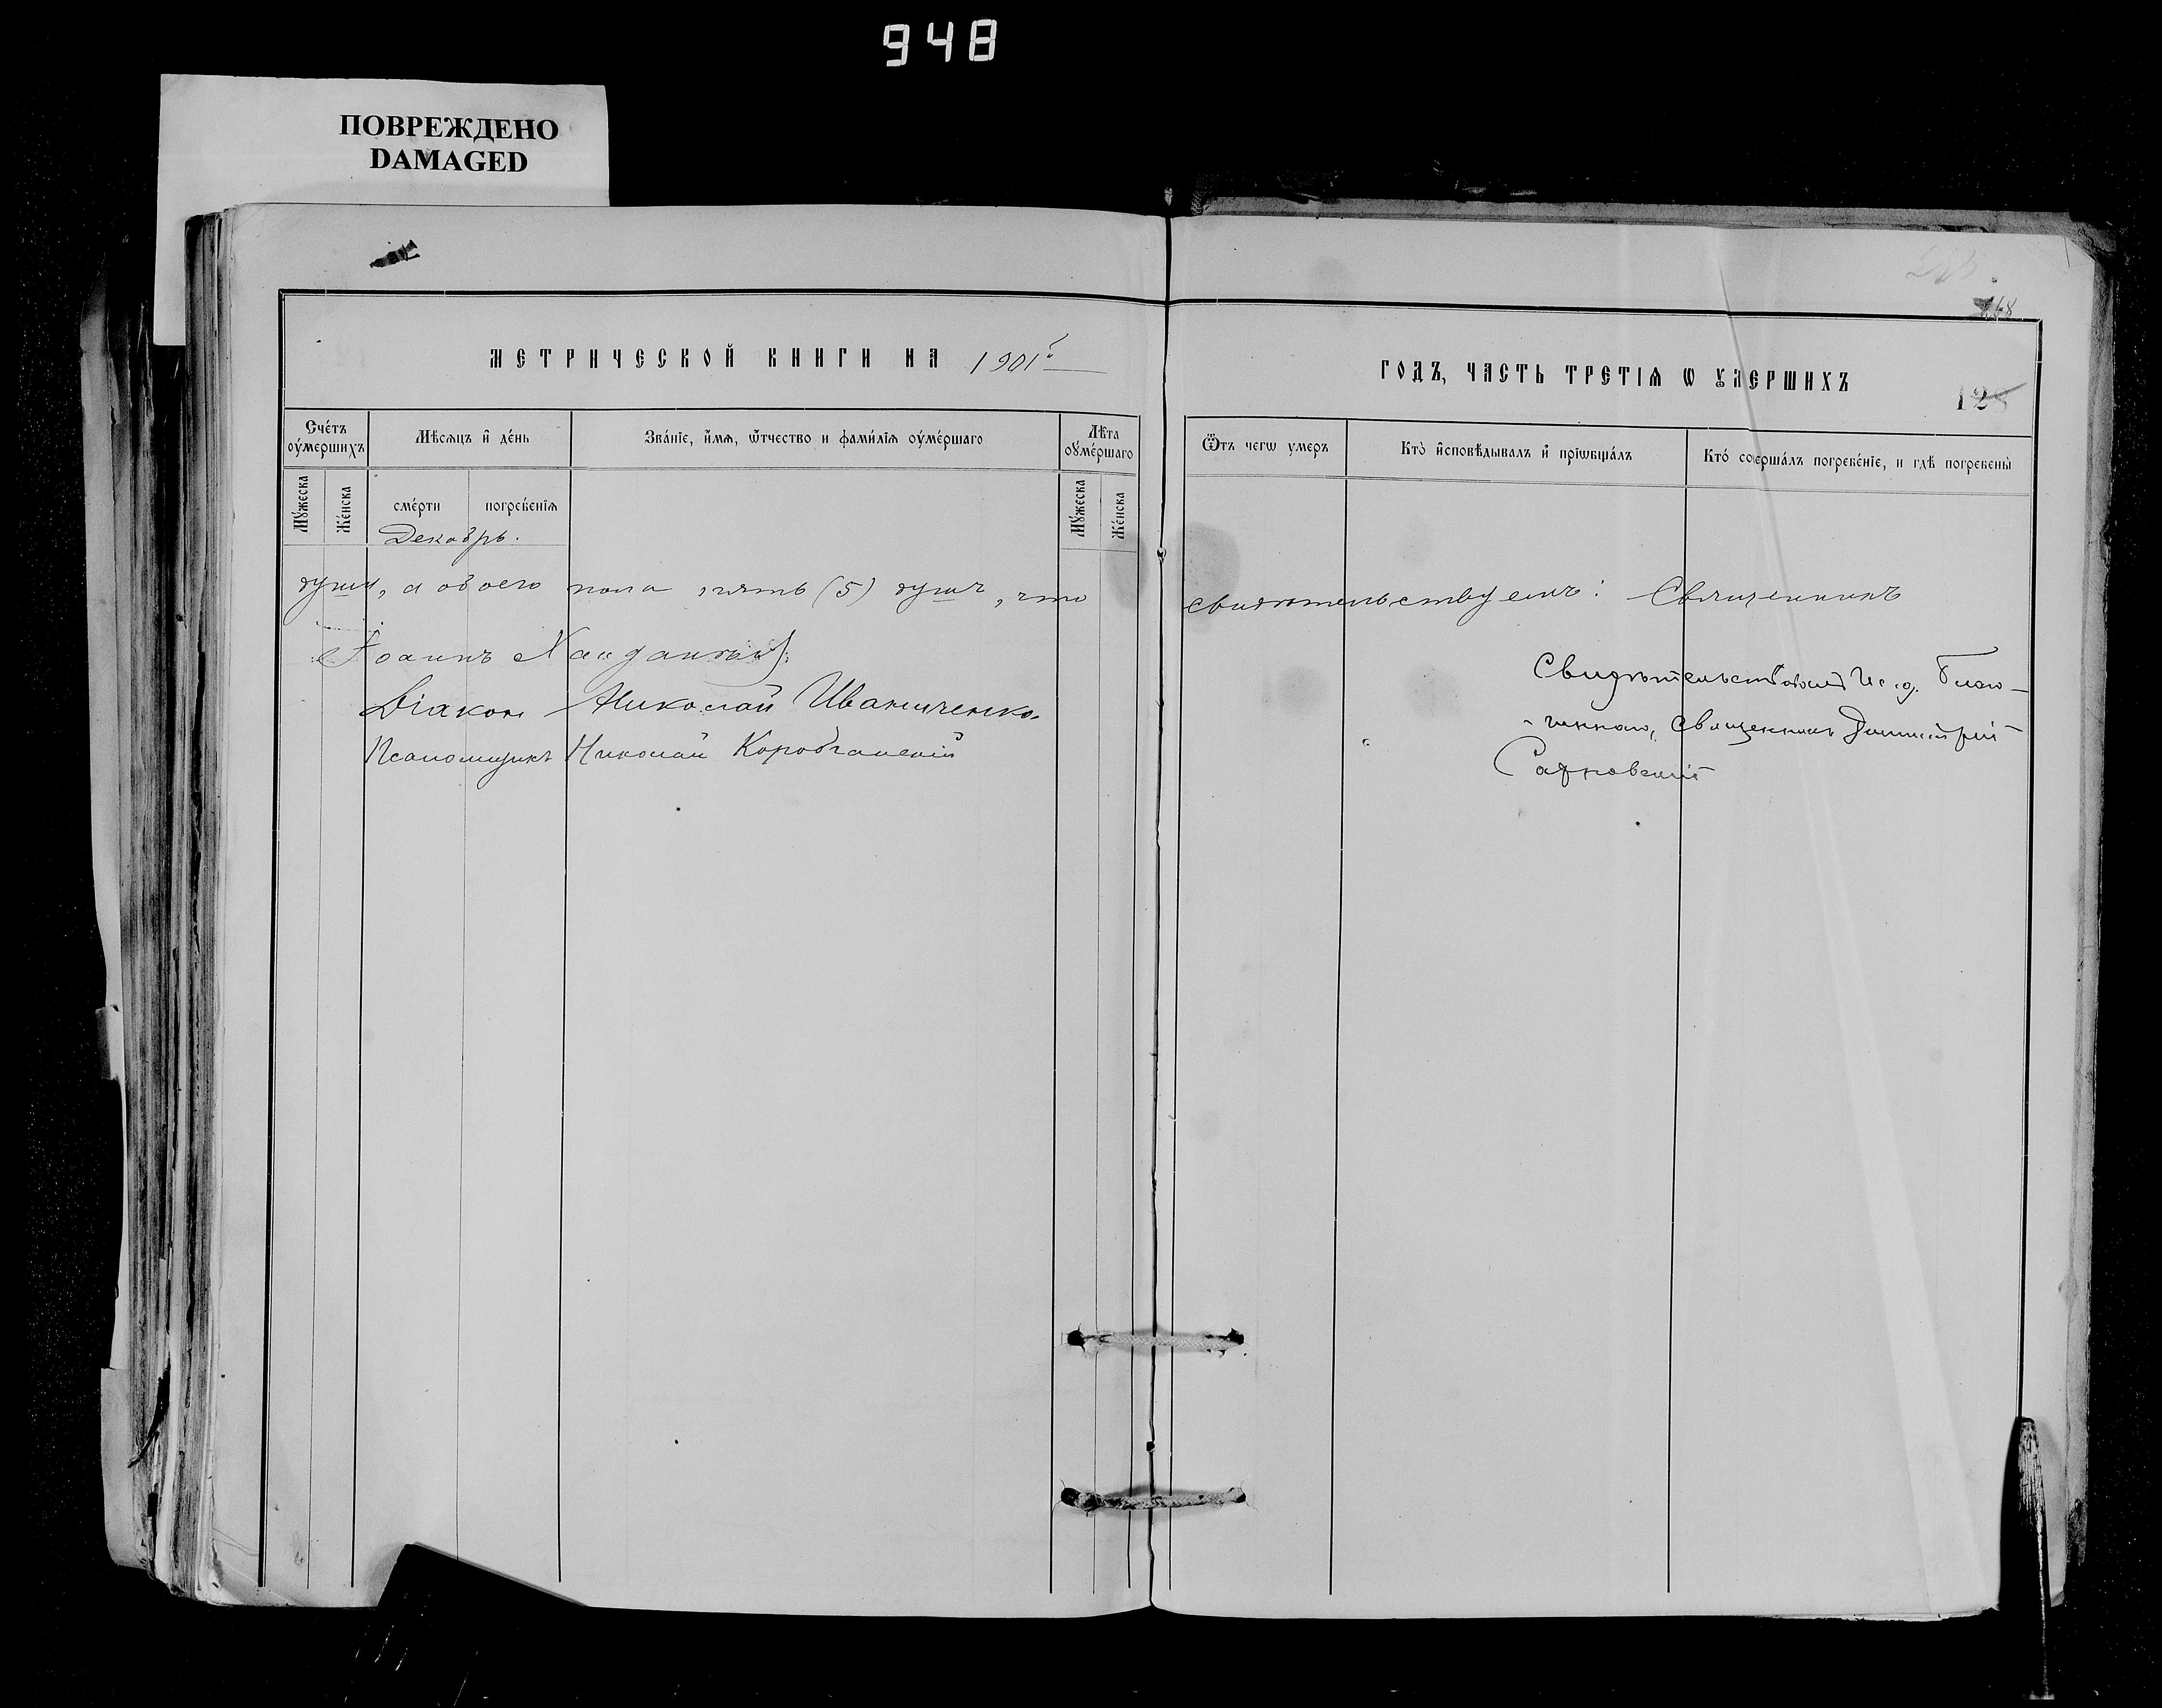 948
ПОВРЕЖДЕНО
DAMAGED
МЕТРИЧЕСКОЙ КНИГИ НА 1901й
ГОДЪ, ЧАСТЬ ТРЕТІѦ Ѡ УМЕРШИХЪ
128
Сче́тъ оу҆ме́ршихъ
Мѣ́сѧцъ и҆ де́нь
Зва́нїе, и҆́мѧ, ѻ҆́тчество и фамилїѧ оу҆ме́ршагѡ
Лѣ́та оу҆ме́ршагѡ
Ѿ чегѡ̀ умеръ
Кто̀ и҆сповѣ́дывалъ и҆ прїѡбща́лъ
Кто́ соверша́лъ погребе́нїе, и гдѣ̀ погребены̀
Му́жеска
Же́нска
сме́рти
погребе́нїѧ
Му́жеска
Же́нска
Декабрь.
души, а обоего пола пять (5) душъ, что свидѣтельствуемъ: Священникъ
Іоаннъ
Діаконъ Николай Иваниченко
Псаломщикъ Николай
Свидѣтельствовалъ И. д. Благо-
чиннаго, священникъ Димитрій